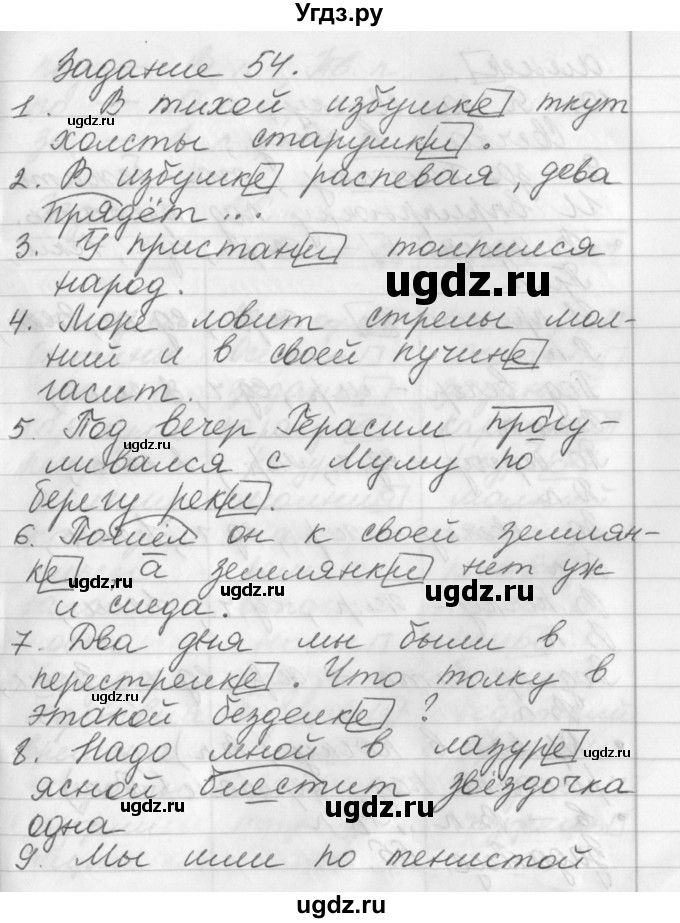 Угдз.ру
Задание 54.
1. В тихой избушке ткут
холсты старушки.
2. В избушке распевая, дева
прядёт...
3. У пристани толпился
народ.
ugdz.ru
ugdz.ru
4. Море ловит стрелы мол-
ний и в своей пучине
ugdz.ru
ugdz.ru
гасит.
5. Под вечер Герасим прогу-
ugdz.ru
ливался с Муму по
берегу реки.
6. Пошёл он к своей землян-
ке а землянки нет уж
ugdz.ru
ugdz.ru
ugdz.ru
и следа.
7. Два дня мы были в
перестрелке. Что толку в
ugdz.ru
ugdz.ru
этакой безделке?
8. Надо мной в лазуре
ugdz.ru
ясной блестит звёздочка
ugdz.ru
ugdz.ru
одна
9. Мы шли по тенистой
ugdz.ru